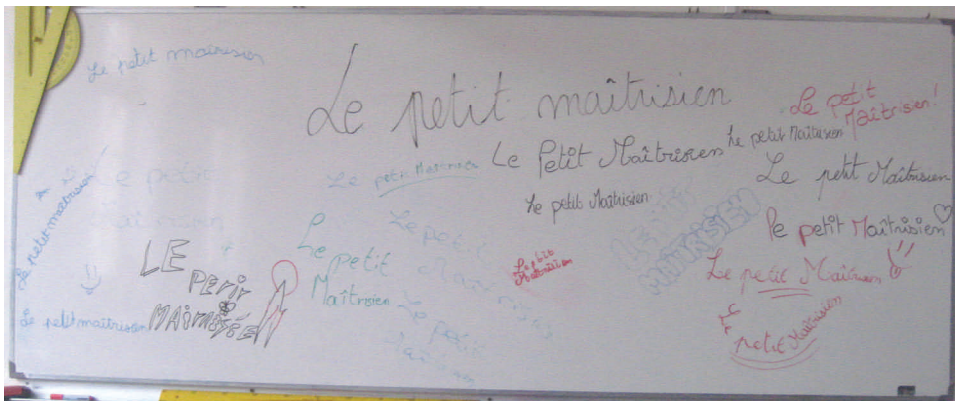 Le petit maîtrisien
Le petit maîtrisien
Le petit
Maîtrisien!
Le petit Maîtrisien
Le Petit Maîtrisien
Le petit Maîtrisien
Le petit Maîtrisien
Le petit Maîtrisien
Le petit
maîtrisien
Le petit maîtrisien
Le petit
Maîtrisien
LE PETIT
MAÎTRISIEN
le petit Maîtrisien
Le petit
Maîtrisien
Le petit
Maîtrisien
Le petit
Maîtrisien
LE
PETIT
Le petit Maîtrisien
Le petit
Maîtrisien
Le petit maîtrisien
Le petit Maîtrisien